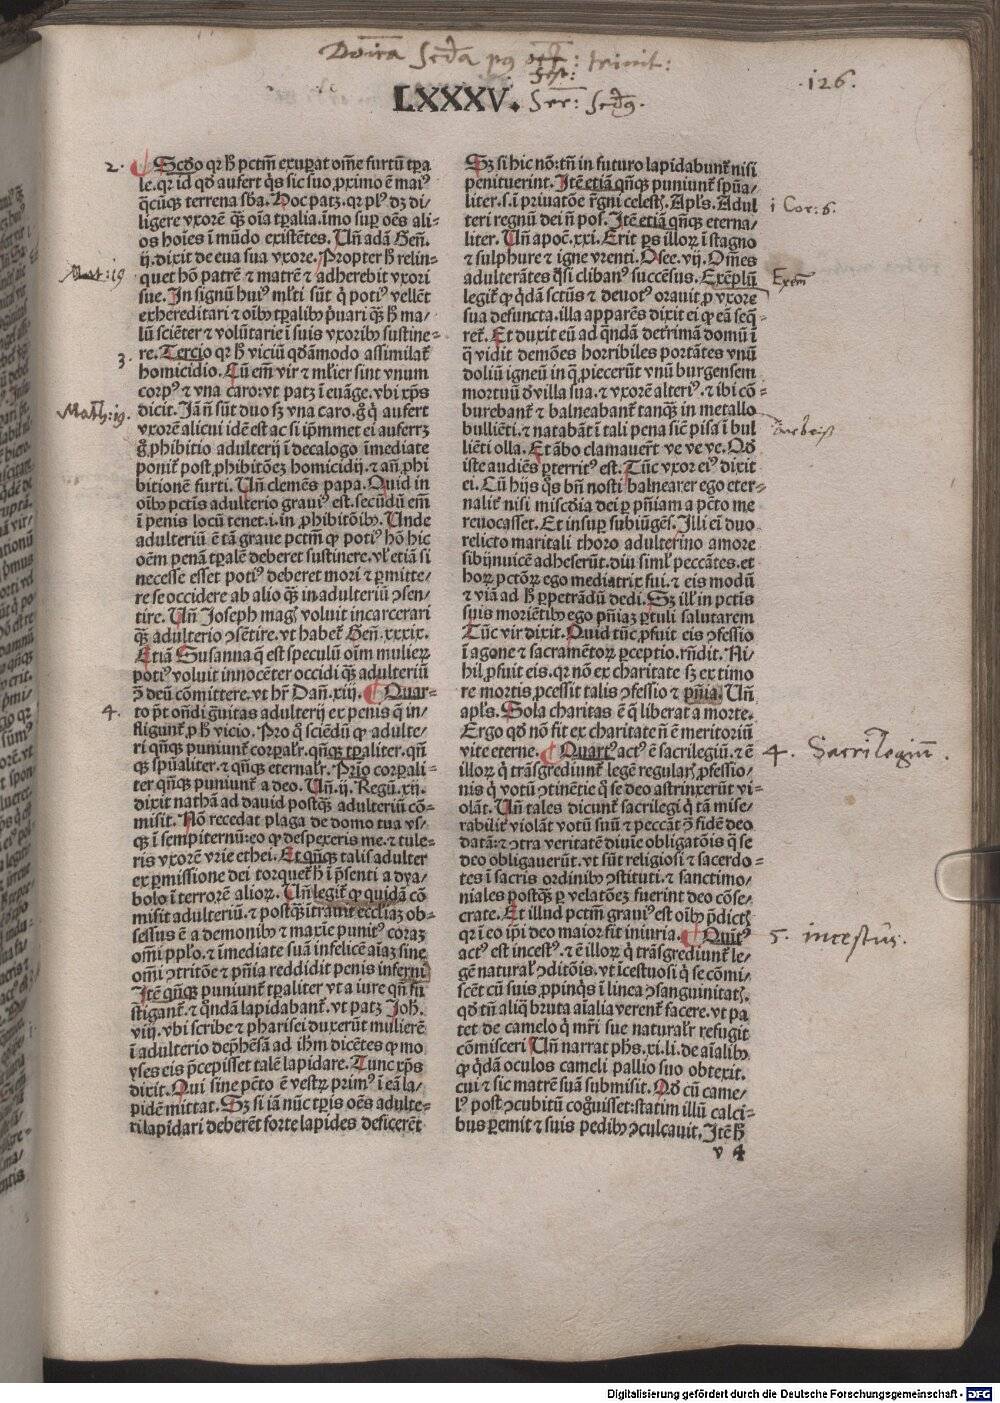 Do͞ica Scd̄a pꝰ oct̄: trinit:
fest:
·126·
LXXXV. Ser: Scd̄ꝰ.
2. Scd̄o qꝛ h̄ pctm̄ exuꝑat om̄e furtū tꝑa
le. qꝛ id qd̓ aufert q̇s sic suo ꝓximo ē maiꝰ
q̄cūqꝫ terrena sb̓a. Hoc patꝫ. qꝛ plꝰ dꝫ di/
ligere vxorē qꝫ̄ oīa tꝑalia. īmo suꝑ oēs ali-
os hoīes ī mūdo existētes. Uñ adā Geñ.
ij. dixit de eua sua vxore. Propter h̄ relin-
quet hō patrē ⁊ matrē ⁊ adherebit vxori
sue. In signū huiꝰ ml̓ti sūt q̇ potiꝰ vellēt
exhereditari ⁊ oībꝫ tꝑalibꝫ p̓uari qꝫ̄ h̄ ma/
lū sciēter ⁊ volūtarie ī suis vxoribꝫ sustine-
re. Tercio qꝛ h̄ viciū qd̓āmodo assimilat̄
homicidio. Cū em̄ vir ⁊ ml̓ier sint vnum
corpꝰ ⁊ vna caro: vt patꝫ ī euāge. vbi xp̄s
dicit. Iā n̄ sūt duo sꝫ vna caro. g̊ q̇ aufert
vxorē alicui idē est ac si ip̄mmet ei auferꝫ
g̊ ꝓhibitio adulterij ī decalogo īmediate
ponit̄ post ꝓhibitōeꝫ homicidij. ⁊ añ ꝓhi
bitionē furti. Uñ clemēs papa. Quid in
oībꝫ pctīs adulterio grauiꝰ est. secūdū em̄
ī penis locū tenet. i. in ꝓhibitōibꝫ. Unde
adulteriū ē tā graue pctm̄ ꝙ potiꝰ hō hic
oēm penā tꝑalē deberet sustinere. vl̓ etiā si
necesse esset potiꝰ deberet mori ⁊ ꝑmitte/
re se occidere ab alio qꝫ̄ in adulteriū ꝯsen/
tire. Uñ Joseph magꝭ voluit incarcerari
qꝫ̄ adulterio ꝯsētire. vt habet̄ Geñ. xxxix.
Etiā Susanna q̄ est speculū oīm mulierꝝ
potiꝰ voluit innocēter occidi qꝫ̄ adulteriū
ꝯ̄ deū cōmittere. vt hr̄ Dañ. xiij. Quar-
to p̄t on̄di g̓uitas adulterij ex penis q̄ in/
fligunt̄ ꝓ h̄ vicio. Pro q̊ sciēdū ꝙ adulte/
ri qn̄qꝫ puniunt̄ corꝑalr̄. qn̄qꝫ tꝑaliter. qn̄
qꝫ spūaliter. ⁊ qn̄qꝫ eternalr̄. Prīo corꝑali-
ter qn̄qꝫ puniunt̄ a deo. Uñ. ij. Regū. xij.
dixit nathā ad dauid postqꝫ̄ adulteriū cō-
misit. Nō recedat plaga de domo tua vs/
qꝫ ī sempiternū: eo ꝙ despexeris me. ⁊ tule-
ris vxorē vrie ethei. Et qn̄qꝫ talis adulter
ex ꝑmissione dei torquet̄ h̄ ī p̄senti a dya/
bolo ī terrorē aliorꝝ. Uñ legit̄ ꝙ quidā cō
misit adulteriū. ⁊ postqꝫ̄ ītrauit eccl̓iaꝫ ob-
sessus ē a demonibꝫ ⁊ maxīe punitꝰ coraꝫ
om̄i pp̄lo. ⁊ īmediate suā infelicē aīaꝫ sine
om̄i ꝯtritōe ⁊ pn̄ia reddidit penis inferni
Itē qn̄qꝫ puniunt̄ tꝑaliter vt a iure qn̄ fu
stigant̄. ⁊ q̊ndā lapidabant̄. vt patꝫ Joh̄.
viij. vbi scribe ⁊ pharisei duxerūt mulierē
ī adulterio dep̄hēsā ad ih̄m dicētes ꝙ mo
yses eis p̄cepisset talē lapidare. Tunc xp̄s
dixit. Qui sine pctō ē vestrꝝ primꝰ ī eā la/
pidē mittat. Sꝫ si iā nūc tꝑis oēs adulte-
ri lapidari deberēt forte lapides deficerēt
Mat: 19
3.
Math: 19.
4.
Sꝫ si hic nō: tn̄ in futuro lapidabunt̄ nisi
penituerint. Itē etiā qn̄qꝫ puniunt̄ spūa/
liter. s. ī priuatōe r̄gni celestꝭ. Apl̓s. Adul
teri regnū dei n̄ pos. Itē etiā qn̄qꝫ eterna/
liter. Uñ apoc̄. xxi. Erit ꝑs illorꝝ ī stagno
⁊ sulphure ⁊ igne vrenti. Osee. vij. Om̄es
adulterātes q̇si clibanꝰ succēsus. Exēplū
legit̄ ꝙ q̇dā sctūs ⁊ deuotꝰ orauit ꝓ vxore
sua defuncta. illa apparēs dixit ei ꝙ eā seq̄-
ret̄. Et duxit eū ad q̄ndā deṫrimā domū ī
q̄ vidit demōes horribiles portātes vnū
doliū igneū in q̊ ꝓiecerūt vnū burgensem
mortuū d̓ villa sua. ⁊ vxorē alteriꝰ. ⁊ ibi cō-
burebant̄ ⁊ balneabant̄ tanqꝫ̄ in metallo
bulliēti. ⁊ natabāt ī tali pena sic̄ pisa ī bul
liēti olla. Et ābo clamauer̄t ve ve ve. Qd̓
iste audiēs ꝑterritꝰ est. Tūc vxor eiꝰ dixit
ei. Cū hijs q̊s bn̄ nosti balnearer ego eter-
nalit̄ nisi miscd̓ia dei ꝑ pn̄iam a pctō me
reuocasset. Et insuꝑ subiūgēs. Illi ei duo
relicto maritali thoro adulterino amore
sibijnuicē adheserūt. diu siml̓ peccātes. et
horꝝ pctōrꝝ ego mediatrix fui. ⁊ eis modū
⁊ viā ad h̄ ꝑpetrādū dedi. Sꝫ illꝭ in pctīs
suis moriētibꝫ ego pn̄iaꝫ ꝑtuli salutarem
Tūc vir dixit. Quid tūc ꝓfuit eis ꝯfessio
ī agone ⁊ sacramētorꝝ ꝑceptio. rn̄dit. Ni/
hil ꝓfuit eis. qꝛ nō ex charitate sꝫ ex timo
re mortis ꝓcessit talis ꝯfessio ⁊ pn̄ia. Uñ
apl̓s. Sola charitas ē q̄ liberat a morte.
Ergo qd̓ nō fit ex charitate n̄ ē meritoriū
vite eterne. Quartꝰ actꝰ ē sacrilegiū. ⁊ ē
illorꝝ q̇ trāsgrediunt̄ legē regularꝭ ꝓfessio/
nis q̇ votū ꝯtinētie q̊ se deo astrinxerūt vi-
olāt. Uñ tales dicunt̄ sacrilegi q̇ tā mise/
rabilit̄ violāt votū suū ⁊ peccāt ꝯ̄ fidē deo
datā: ⁊ ꝯtra veritatē diuīe obligatōis q̊ se
deo obligauerūt. vt sūt religiosi ⁊ sacerdo-
tes ī sacris ordinibꝫ ꝯstituti. ⁊ sanctimo/
niales postqꝫ̄ ꝑ velatōeꝫ fuerint deo cōse/
crate. Et illud pctm̄ grauiꝰ est oībꝫ p̄dictꝭ
qꝛ ī eo ip̄i deo maior fit iniuria. Quītꝰ
actꝰ est incestꝰ. ⁊ ē illorꝝ q̇ trāsgrediunt̄ le-
gē naturalꝭ ꝯditōis. vt īcestuosi q̇ se cōmi/
scēt cū suis ꝓpinq̇s ī linea ꝯsanguinitatꝭ.
qd̓ tn̄ aliq̄ bruta aīalia verent̄ facere. vt pa
tet de camelo q̇ mr̄i sue naturalr̄ refugit
cōmisceri Uñ narrat ph̄s. xi. li. de aīalibꝫ
ꝙ q̇dā oculos cameli pallio suo obtexit.
cui ⁊ sic matrē suā submisit. Qd̓ cū came-
lꝰ post ꝯcubitū cog̓uisset: statim illū calci-
bus ꝑemit ⁊ suis pedibꝫ ꝯculcauit. Itē h̄
v 4
i Cor: 6.
Exem̄
4. Sacrilegiū.
5. incestūs.
Digitalisierung gefördert durch die Deutsche Forschungsgemeinschaft - DFG